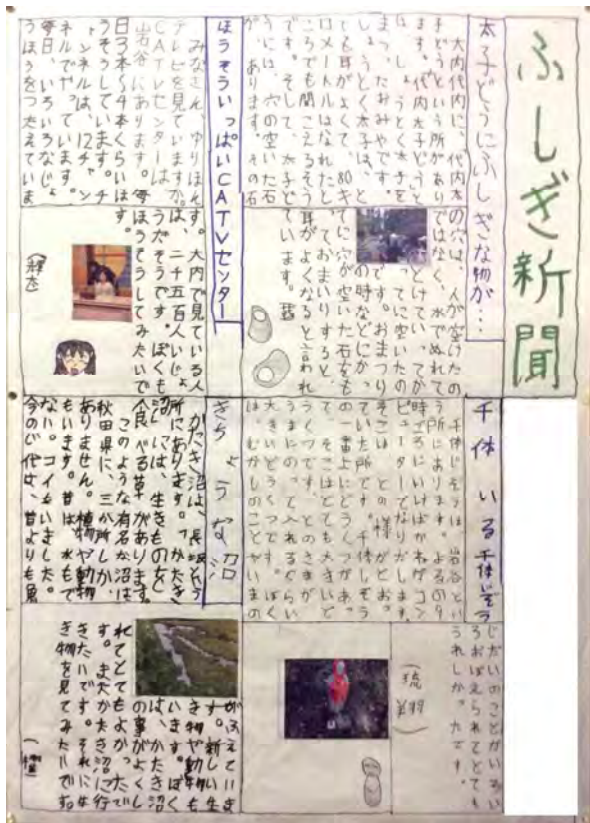 ふしぎ新聞
太子どうにふしぎな物が…
大内代内に、代内太
子どうという所があり
ます。代内太子どうと
は、しょうとく太子を
まつったおみやです。
しょうとく太子は、と
ても耳がよくて、80キ
ロメートルはなれたと
ころでも聞こえるそう
です。そして、太子ど
うには、穴の空いた石
が、あります。その石
の穴は、人が空けたの
ではなく、水でぬれて
とけていって、
ってに空いたの
です。おまつり
の時などにかっ
てに穴が空いた石をも
って、おまいりすると、
耳がよくなると言われ
ています。
ほうそういっぱいCATVセンター
みなさん、ゆりほん
テレビを見ていますか。
CATVセンターは、
岩谷にあります。毎
日3本〜4本くらいほ
うそうしています。チ
ャンネルは、12チャン
ネルでやっています。
毎日、いろいろなじょ
うほうをつたえていま
す。大内で見ている人
は、二千五百人いじょ
うだそうです。ぼくも
ほうそうしてみたいで
す。
(翔太)
千体いる千体じぞう
千体じぞうは、岩谷とい
う所にあります。よるの9
時ごろにいけばかねがコン
ピューターでなりだします。
そこは、との様がとお
っていた所です。千体じぞう
の一番上にどうくつがあっ
て、そこはとても大きいど
うくつです。とのさまが
うまにのって入れるぐらい
大きいどうくつです。ぼく
は、むかしのことやいまの
じだいのことがいろい
ろおぼえられてとても
うれしかったです。
きちょうな沼
かたき沼は、長坂という
所にあります。かたき
沼には、生きものを
食べる草があります。
このような有名な沼は
秋田県に、三か所しか
ありません。植物や動物
もいます。昔は、水もで
ない。コイもいました。
今のじ代は、昔よりも
がふえていま
す。新しい生
き物や動物も
います。ぼく
は、かたき沼
の事がよくし
れてとてもよかったで
す。またかたき沼に行
きたいです。それに生
き物を見てみたいです。